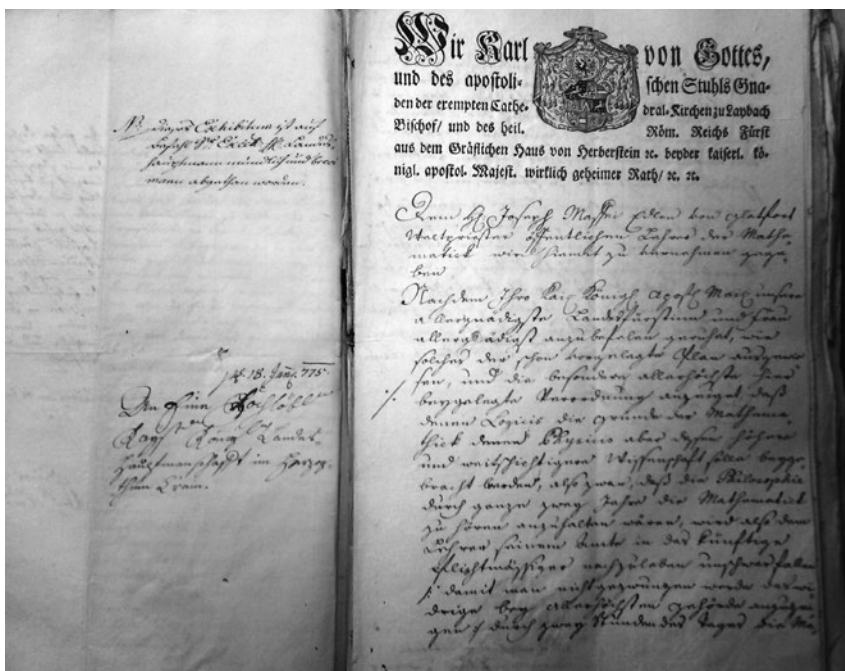 Nb. dieses Exhibitum ist auf
befehl Sr Excell. H. Landes-
hauptmann mündlich und brevi
manu abgethan worden.
18. Jan. 775.
An Eine Hochlöbl
Kays. König. Landes-
Hauptmanschafft im Herzog-
thum Crain.
Wir Karl von Gottes,
und des apostoli- schen Stuhls Gna-
den der exempten Cathe- dral-Kirchen zu Laybach
Bischof/ und des heil. Röm. Reichs Fürst
aus dem Gräflichen Haus von Herberstein ꝛc. beyder kaiserl. kö-
nigl. apostol. Majest. wirklich geheimer Rath/ ꝛc. ꝛc.
Dem H. Joseph Maffei Edlen von Glatfort
Weltpriester öffentlichen Lehrer der Mathe-
matick wird hiemit zu vernehmen gege-
ben
Nachdem Ihro Kai. Königl. Apost. May. unsere
allergnädigste Landesfürstinn und Frau
allergnädigst anzubefehlen geruhet, wie
solches der schon vorgelegte Plan ausgewie-
sen, und die besondere allerhöchste hier
beygelegte Verordnung anzeiget, daß
denen Logicis die gründe der Mathema-
thick denen Physicis aber dessen höhere
und weitschichtigere Wissenschaft solle beyge-
bracht werden, also zwar, daß die Philosophie
durch ganze zwey Jahre die Mathematick
zu hören anzuhalten wären, wird also dem
Lehrer seinem Amte in das künftige
pflichtmässiger nachzuleben unschwer fallen
/: damit man nicht gezwungen werde das wi-
drige bey allerhöchsten gehörde anzuzei-
gen :/ durch zwey Stunden des Tages die Ma-